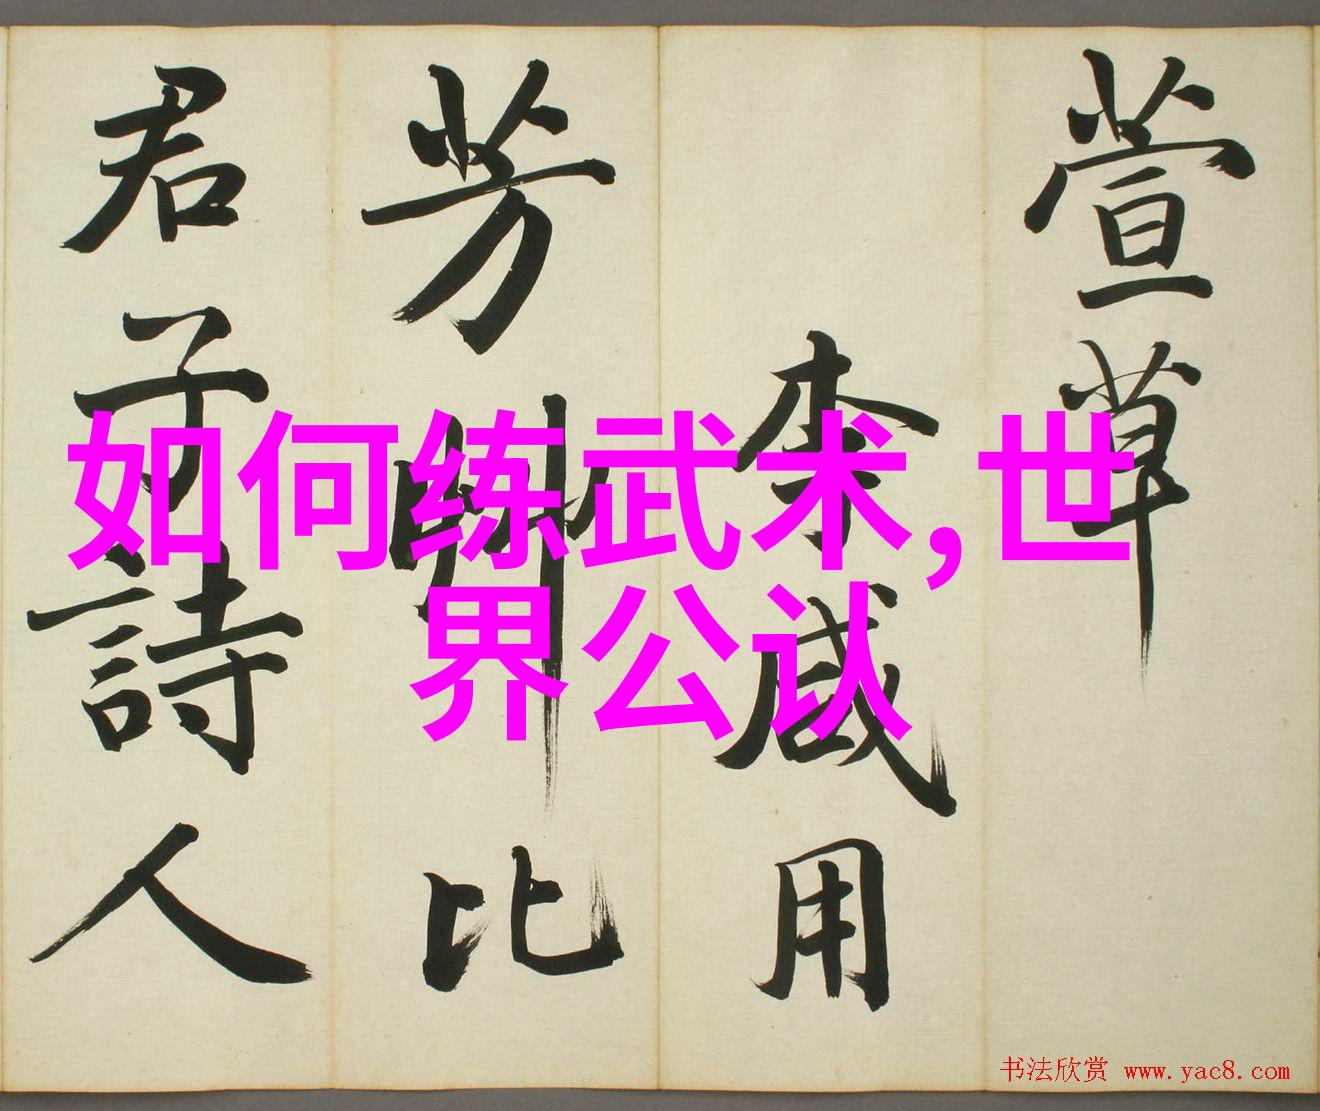 萱草
李咸用
芳草比
君子詩人
如何练武术,世
界公认
书法欣赏 www.yac8.com